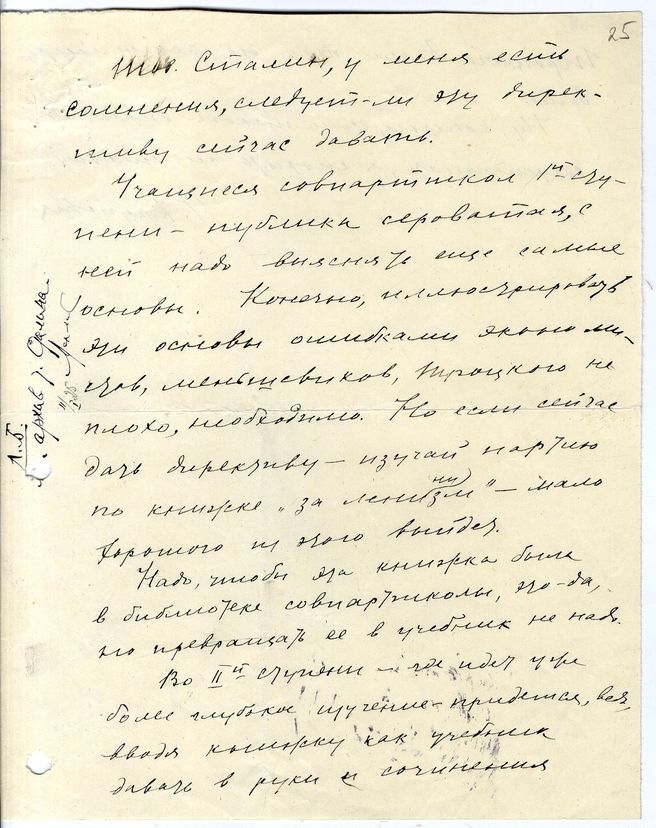 25
Тов. Сталин, у меня есть
сомнения, следует-ли эту дирек-
тиву сейчас давать.
Учащиеся совпартшкол 1й сту-
пени – публика сероватая, с
ней надо выяснять еще самые
основы. Конечно, иллюстрировать
эти основы ошибками экономи-
стов, меньшевиков, Троцкого не
плохо, необходимо. Но если сейчас
дать директиву – изучай партию
по книжке „за ленинизм" – мало
хорошего из этого выйдет.
Надо, чтобы эта книжка была
в библиотеке совпартшколы, это-да,
но превращать ее в учебник не надо.
Во II й ступени – где идет уже
более глубокое изучение – придется,
вводя книжку как учебник
давать в руки и сочинения
архив т. Сталина.